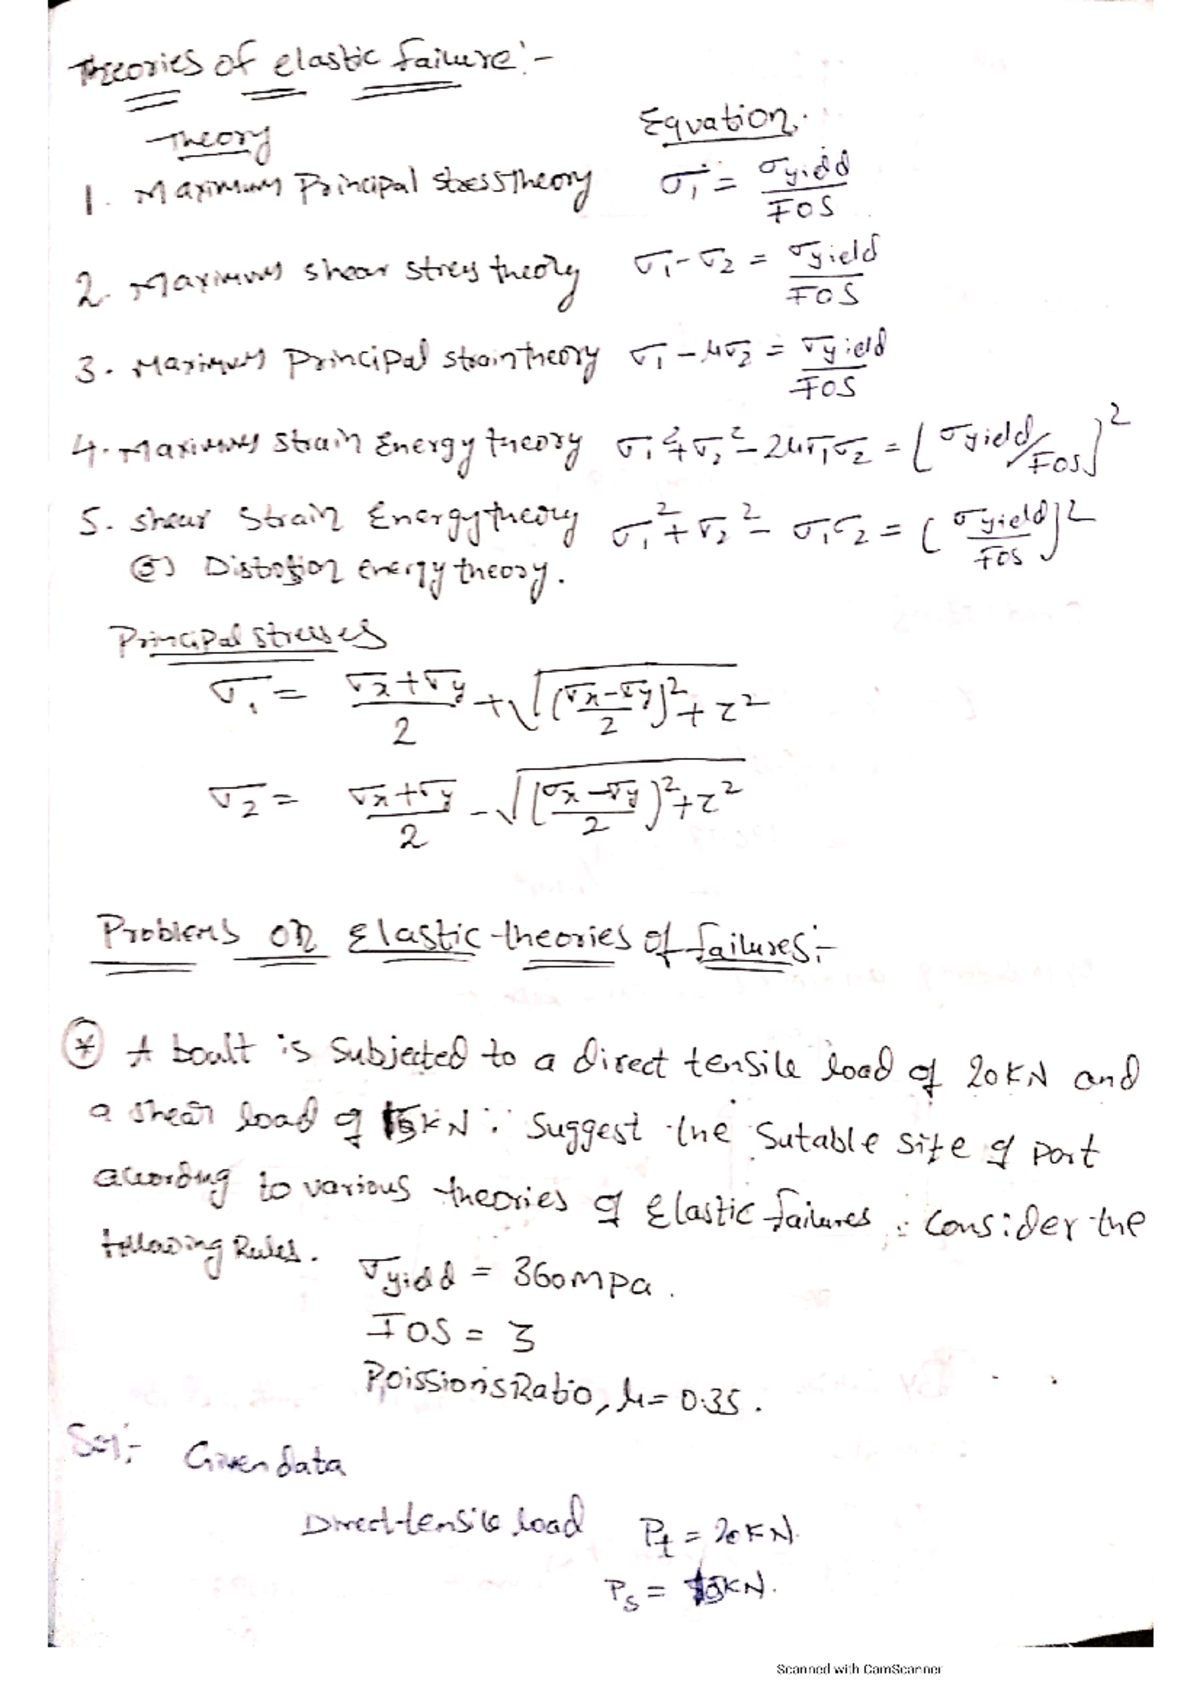 Theories of elastic failure:-
Theory Equation.
1. Maximum Principal stress theory σ1 = σyield/FOS
2. Maximum shear stress theory σ1-σ2 = σyield/FOS
3. Maximum principal strain theory σ1 - μσ2 = σyield/FOS
4. Maximum strain Energy theory σ1² + σ2² - 2μσ1σ2 = [σyield/FOS]²
5. shear Strain Energy theory σ1² + σ2² - σ1σ2 = [σyield/FOS]²
(or) Distortion energy theory.
Principal stresses
σ1 = (σx+σy)/2 + √(((σx-σy)/2)² + τ²)
σ2 = (σx+σy)/2 - √(((σx-σy)/2)² + τ²)
Problems on Elastic theories of failures:-
* A boult is Subjected to a direct tensile load of 20KN and
a shear load of KN. Suggest the Sutable size of part
according to various theories of Elastic failures. Consider the
following Rules.
σyield = 360mpa.
FOS = 3
Poission's Ratio, μ = 0.35.
Sol:- Given data
Direct tensile load Pt = 20KN.
Ps = KN.
Scanned with CamScanner